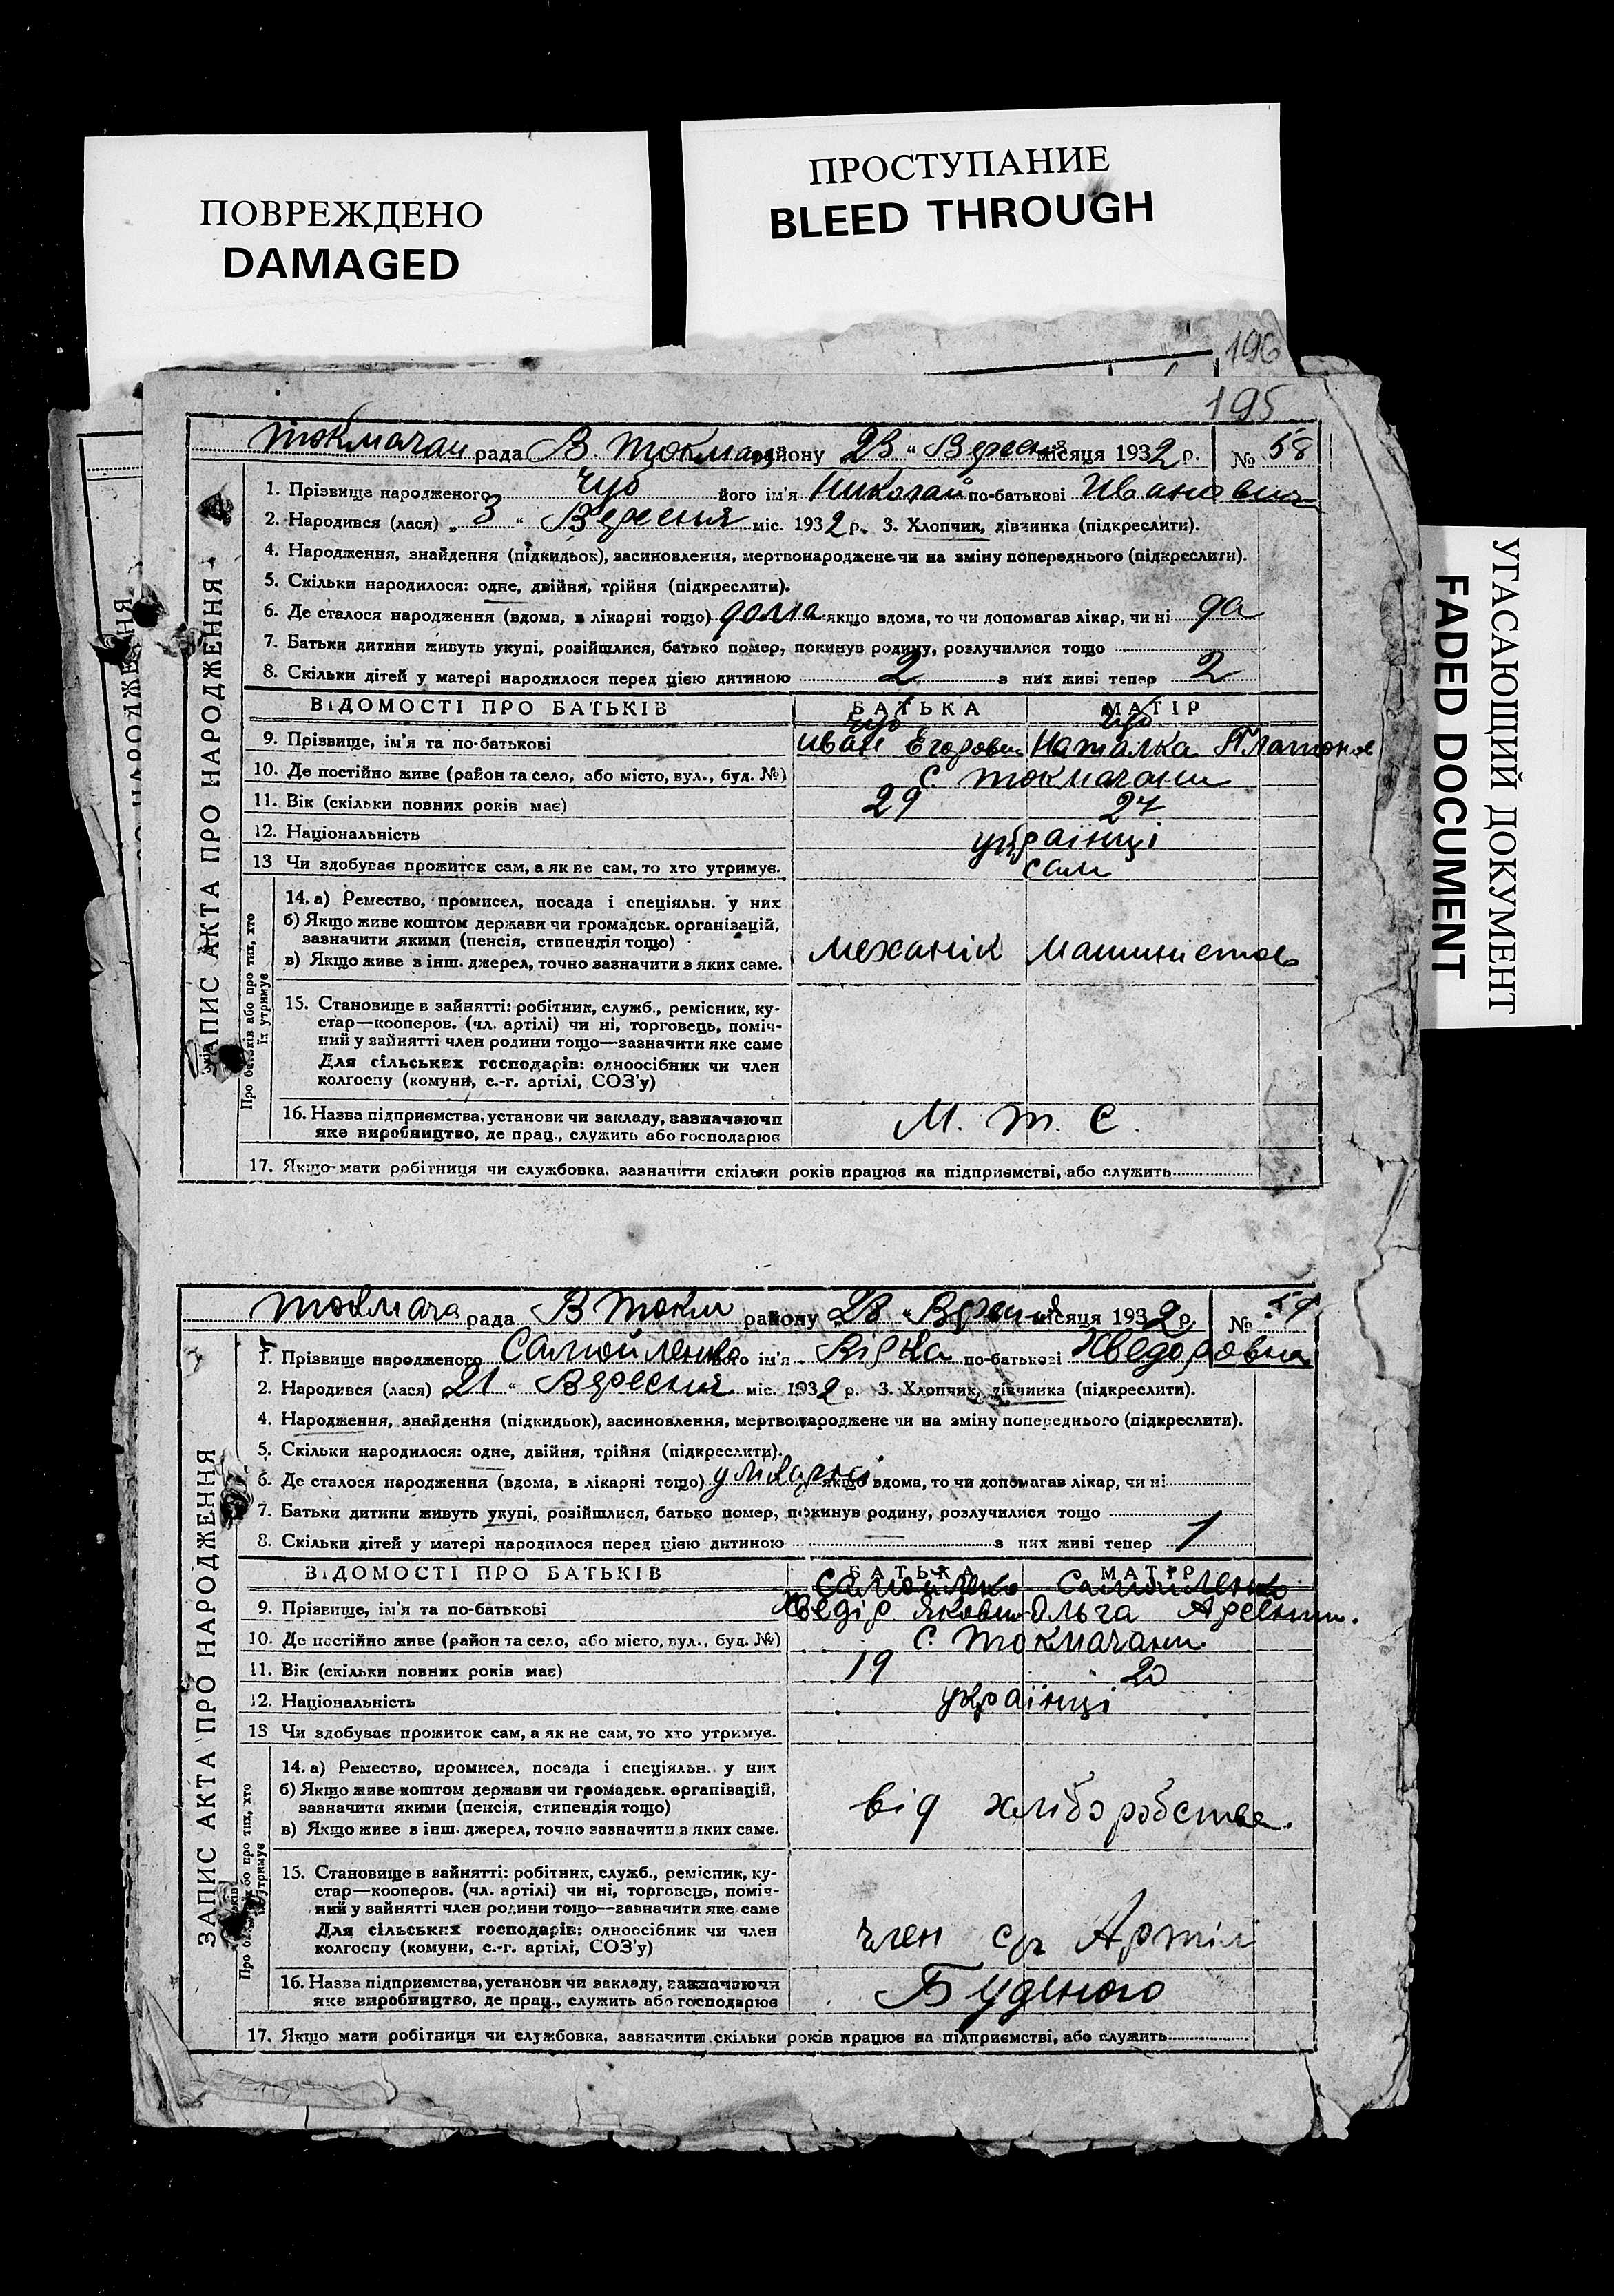 ПОВРЕЖДЕНО
DAMAGED
ПРОСТУПАНИЕ
BLEED THROUGH
196
195
УГАСАЮЩИЙ ДОКУМЕНТ
FADED DOCUMENT
ЗАПИС АКТА ПРО НАРОДЖЕННЯ
Токмачан рада В. Токмац району 23 „ Вересня місяця 1932 р. № 58
1. Прізвище народженого Чуб його ім'я Николай по-батькові Иванович
2. Народився (лася) „ 3 “ Вересня міс. 1932 р. 3. Хлопчик, дівчинка (підкреслити).
4. Народження, знайдення (підкидьок), засиновлення, мертвонароджене чи на зміну попереднього (підкреслити).
5. Скільки народилося: одне, двійня, трійня (підкреслити).
6. Де сталося народження (вдома, в лікарні тощо) дома якщо вдома, то чи допомагав лікар, чи ні да
7. Батьки дитини живуть укупі, розійшлися, батько помер, покинув родину, розлучилися тощо
8. Скільки дітей у матері народилося перед цією дитиною 2 з них живі тепер 2
ВІДОМОСТІ ПРО БАТЬКІВ БАТЬКА МАТІР
Чуб Чуб
9. Прізвище, ім'я та по-батькові Иван Егорович Наталка Платонов
10. Де постійно живе (район та село, або місто, вул., буд. №) с. Токмачани
11. Вік (скільки повних років має) 29 27
12. Національність українці
13 Чи здобував прожиток сам, а як не сам, то хто утримує. сам
Про батьків або про тих, хто їх утримує
14. а) Ремество, промисел, посада і спеціяльн. у них
б) Якщо живе коштом держави чи громадськ. організацій,
зазначити якими (пенсія, стипендія тощо)
в) Якщо живе з інш. джерел, точно зазначити з яких саме.
механік
15. Становище в зайнятті: робітник, служб., ремісник, ку-
стар—кооперов. (чл. артілі) чи ні, торговець, поміч-
ний у зайнятті член родини тощо—зазначити яке саме
Для сільських господарів: одноосібник чи член
колгоспу (комуни, с.-г. артілі, СОЗ'у)
16. Назва підприємства, установи чи закладу, зазначаючи
яке виробництво, де прац., служить або господарює
М. Т. С.
17. Якщо мати робітниця чи службовка, зазначити скільки років працює на підприємстві, або служить
ЗАПИС АКТА ПРО НАРОДЖЕННЯ
Токмача рада В Токм району 28 „ Вересня місяця 1932 р. № 59
1. Прізвище народженого Самойленко його ім'я Вірка по-батькові Хведоровна
2. Народився (лася) 21 “ Вересня міс. 1932 р. 3. Хлопчик, дівчинка (підкреслити).
4. Народження, знайдення (підкидьок), засиновлення, мертвонароджене чи на зміну попереднього (підкреслити).
5. Скільки народилося: одне, двійня, трійня (підкреслити).
6. Де сталося народження (вдома, в лікарні тощо) у лікарні якщо вдома, то чи допомагав лікар, чи ні
7. Батьки дитини живуть укупі, розійшлися, батько помер, покинув родину, розлучилися тощо
8. Скільки дітей у матері народилося перед цією дитиною з них живі тепер 1
ВІДОМОСТІ ПРО БАТЬКІВ БАТЬКА МАТІР
Самойленко Самойленко
9. Прізвище, ім'я та по-батькові Хведір Якович Ольга
10. Де постійно живе (район та село, або місто, вул., буд. №) с. Токмачани
11. Вік (скільки повних років має) 19 20
12. Національність українці
13 Чи здобував прожиток сам, а як не сам, то хто утримує.
14. а) Ремество, промисел, посада і спеціяльн. у них
б) Якщо живе коштом держави чи громадськ. організацій,
зазначити якими (пенсія, стипендія тощо)
в) Якщо живе з інш. джерел, точно зазначити з яких саме.
від хліборобства.
15. Становище в зайнятті: робітник, служб., ремісник, ку-
стар—кооперов. (чл. артілі) чи ні, торговець, поміч-
ний у зайнятті член родини тощо—зазначити яке саме
Для сільських господарів: одноосібник чи член
колгоспу (комуни, с.-г. артілі, СОЗ'у)
член сг Артілі
16. Назва підприємства, установи чи закладу, зазначаючи
яке виробництво, де прац., служить або господарює
Буденого
17. Якщо мати робітниця чи службовка, зазначити скільки років працює на підприємстві, або служить